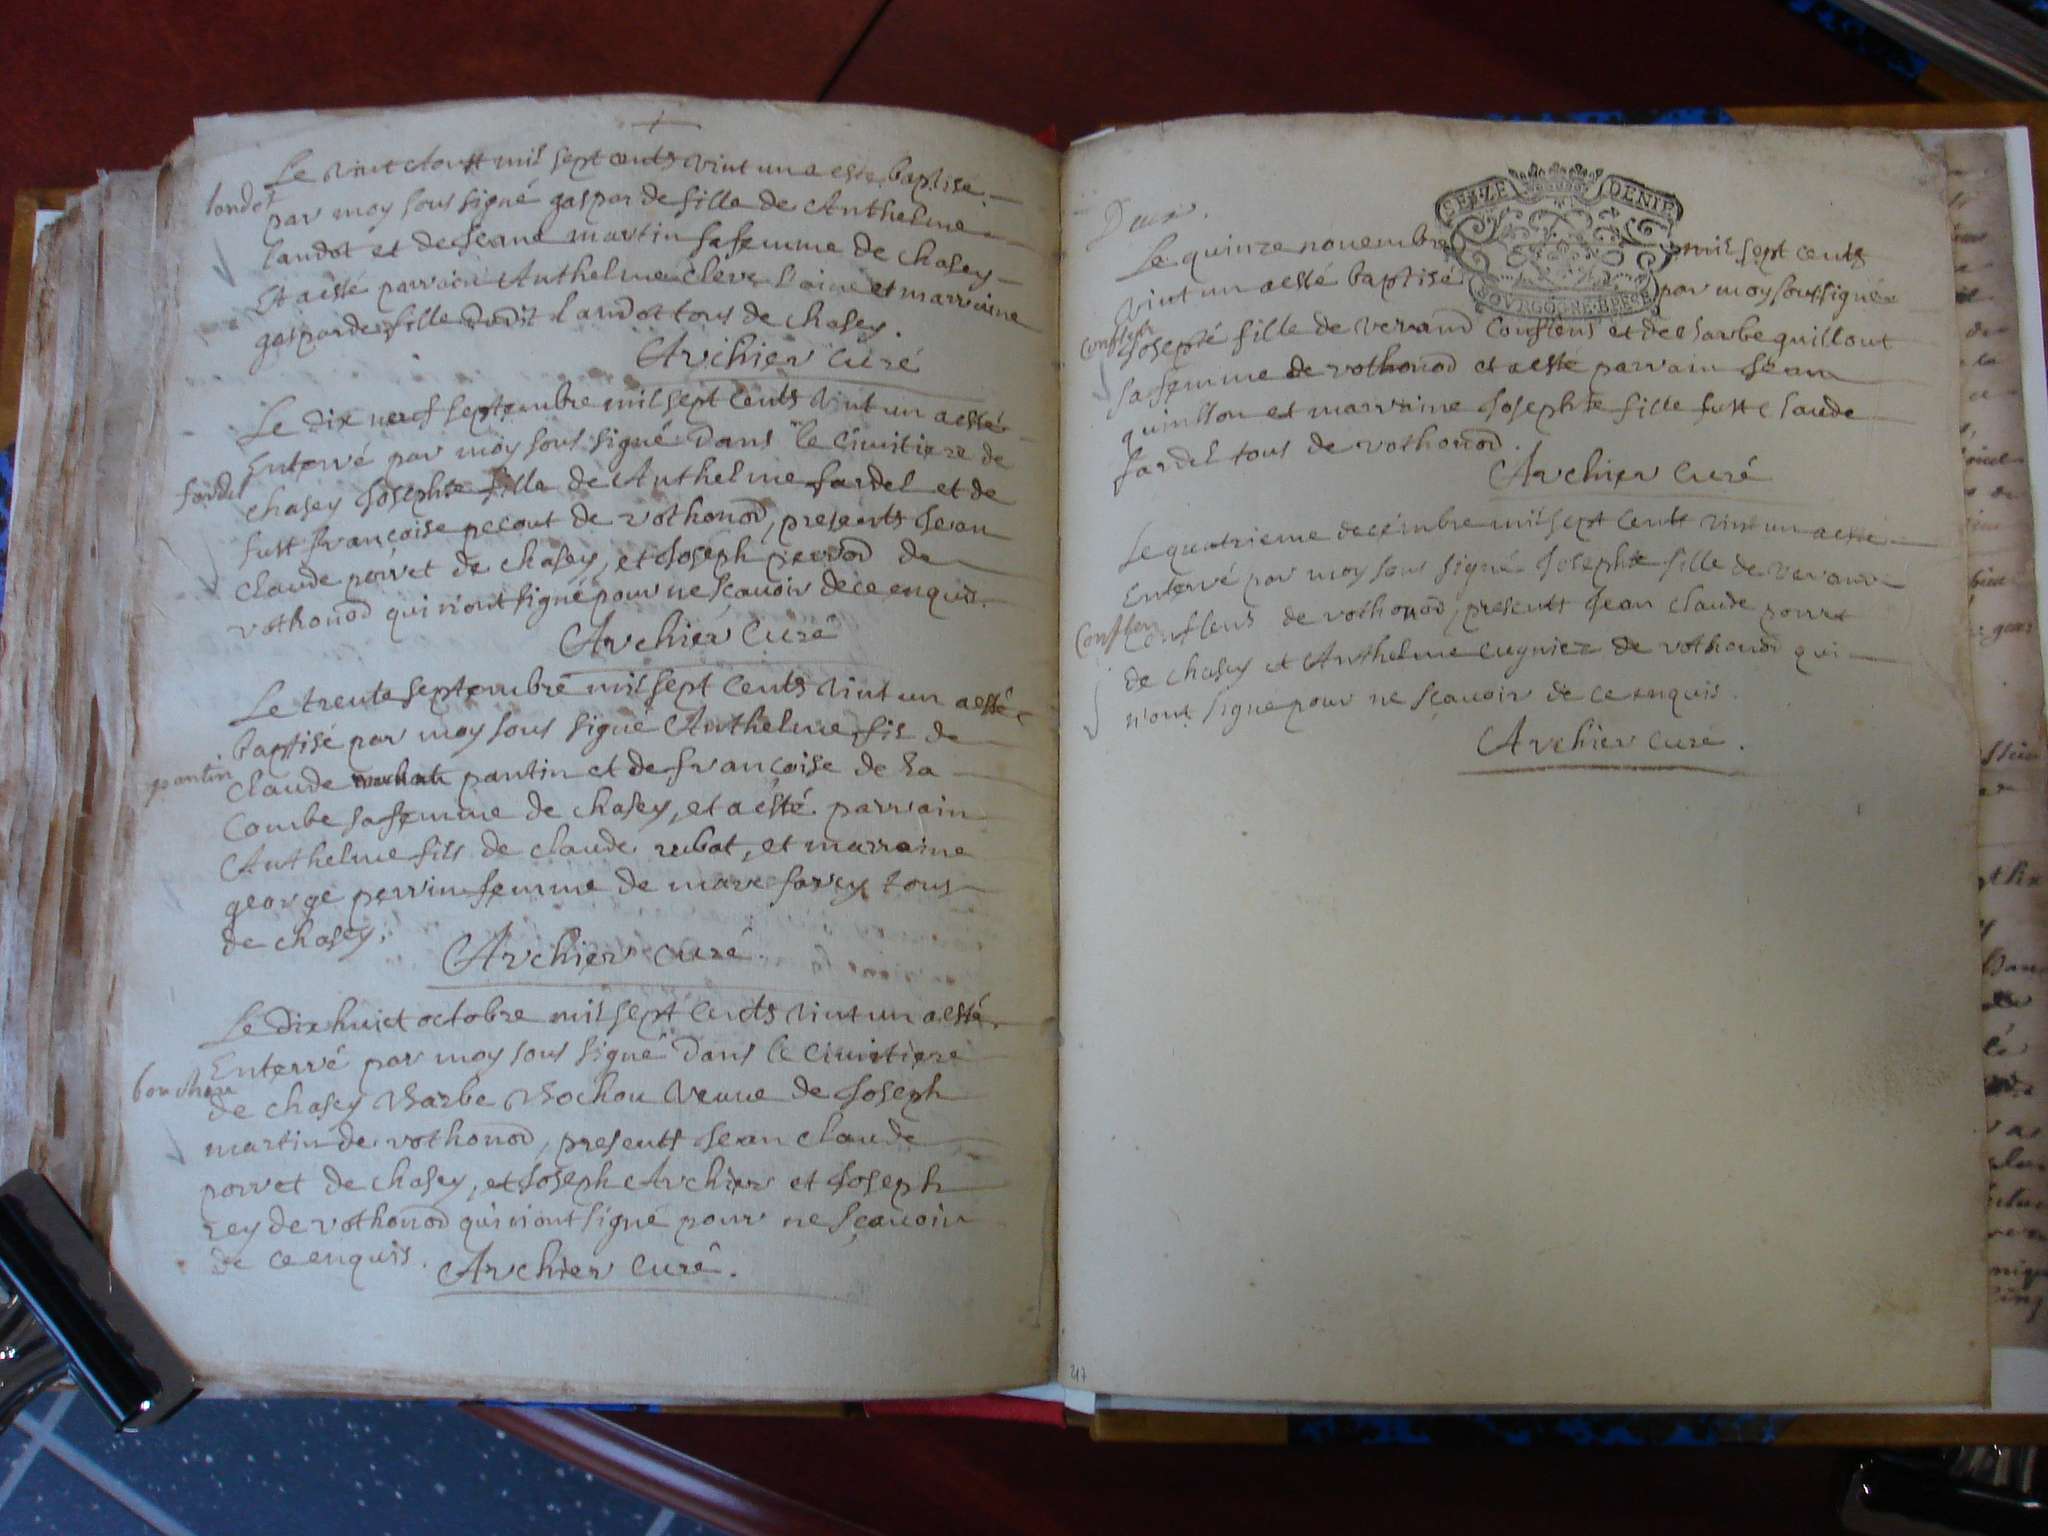 Le vint aoust mil sept cents vint un a esté baptisé
landot
par moy sous signé gasparde fille de Anthelme
landot et de Jeanne martin sa femme de chasey
Et a esté parrain Anthelme clerc l'ainé et marraine
gasparde fille dudit landot tous de chasey.
Archier curé
Le dix neuf septembre mil sept cents vint un a esté
Enterré par moy sous signé dans le cimitiere de
fardel
chasey Josephte fille de Anthelme fardel et de
fust françoise pecout de vothonod, presents Jean
claude porret de chasey, et Joseph perrod de
vothonod qui n'ont signé pour ne sçavoir de ce enquis.
Archier curé
Le trente septembre mil sept cents vint un a esté
baptisé par moy sous signé Anthelme fis de
pantin
claude pantin et de françoise de la
Combe sa femme de chasey, et a esté parrain
Anthelme fils de claude rubat, et marraine
george perrin femme de marc farcy tous
de chasey.
Archier curé.
Le dix huict octobre mil sept cents vint un a esté
Enterré par moy sous signé dans le cimitiere
bouchon
de chasey Barbe Bochon veuve de Joseph
martin de vothonod, presents Jean claude
porret de chasey, et Joseph Archier et Joseph
rey de vothonod qui n'ont signé pour ne sçavoir
de ce enquis.
Archier curé.
SEIZE DENIE
BOVRGOGNE BRESSE
Deux.
Le quinze novembre mil sept cents
vint un a esté baptisé par moy sous signé
Conflens
Josepte fille de verand Conflens et de barbe quillont
sa femme de vothonod et a esté parrain Jean
quinllon et marraine Josephte fille fust claude
fardel tous de vothonod.
Archier curé
Le quatrieme decembre mil sept cents vint un a esté
Enterré par moy sous signé Josephte fille de verand
Conflens
Conflens de vothonod, presents Jean claude porret
de chasey et Anthelme cugniez de vothonod qui
n'ont signé pour ne sçavoir de ce enquis.
Archier curé.
217